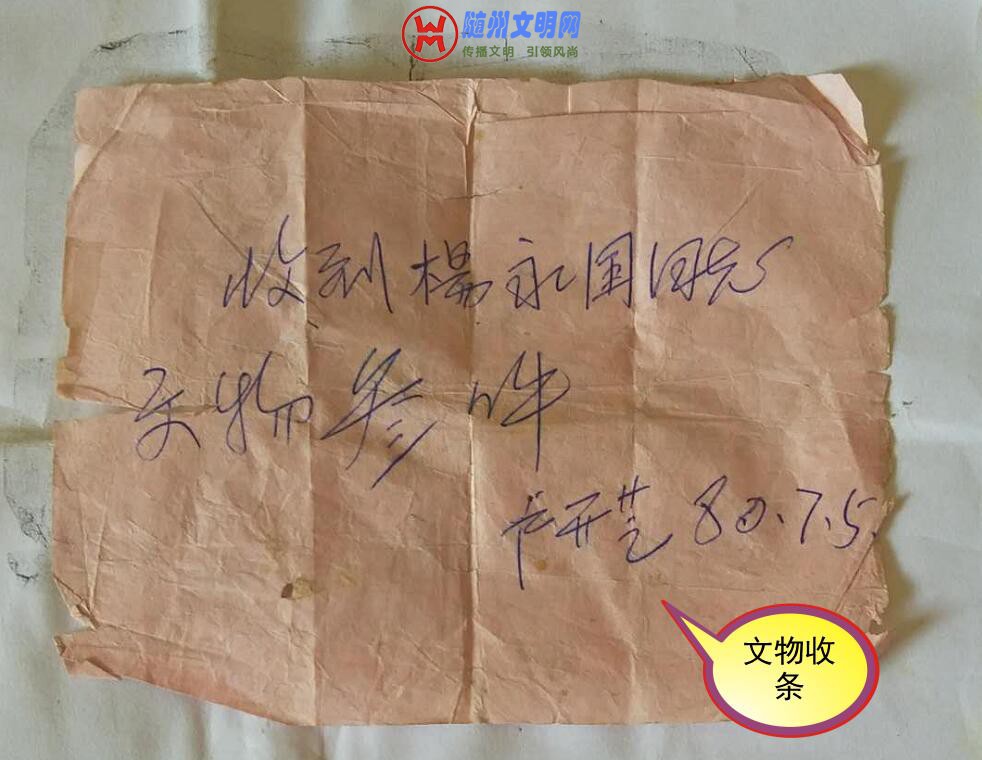 随州文明网
传播文明 引领风尚
收到楊永国同志
文物参件
开艺 80.7.5.
文物收
条